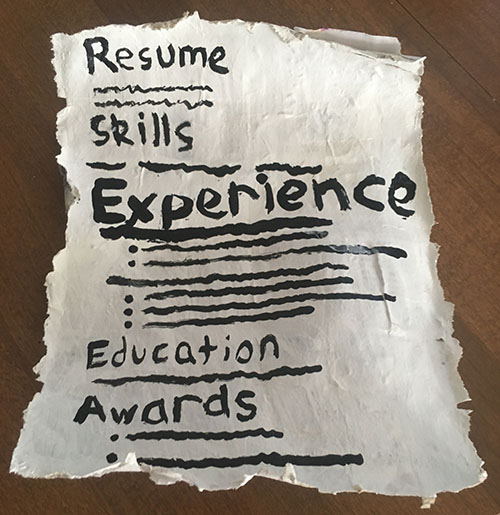 Resume
Skills
Experience
Education
Awards